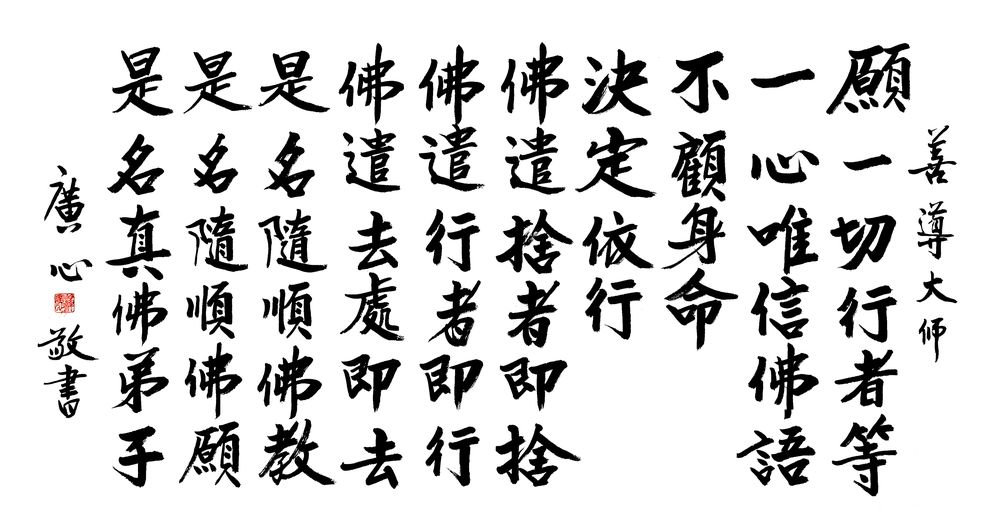 善導大師
願一切行者等
一心唯信佛語
不顧身命
決定依行
佛遣捨者即捨
佛遣行者即行
佛遣去處即去
是名隨順佛教
是名隨順佛願
是名真佛弟子
廣心
敬書